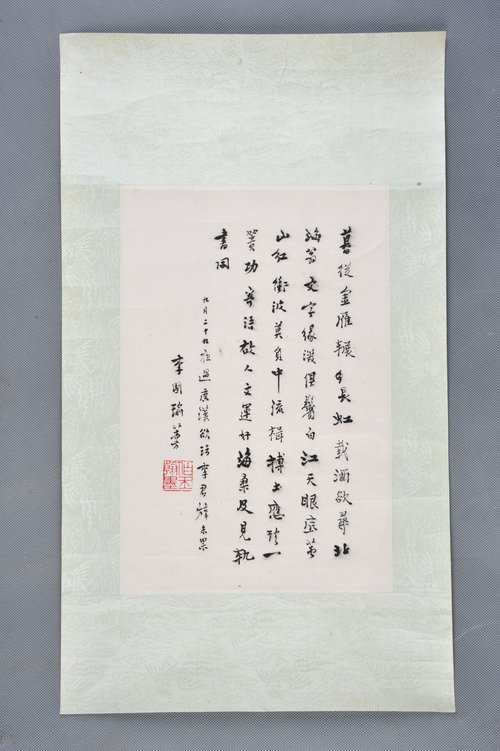 暮從金雁長虹載酒欲尋北
海翁文字緣深俱鬢白江天眼底萬
山紅衝波莫負中流楫摶土應珍一
簣功寄語故人文運好海桑及見執
書同
九月二十九夜過廣漢欲訪李君未果
李國瑜